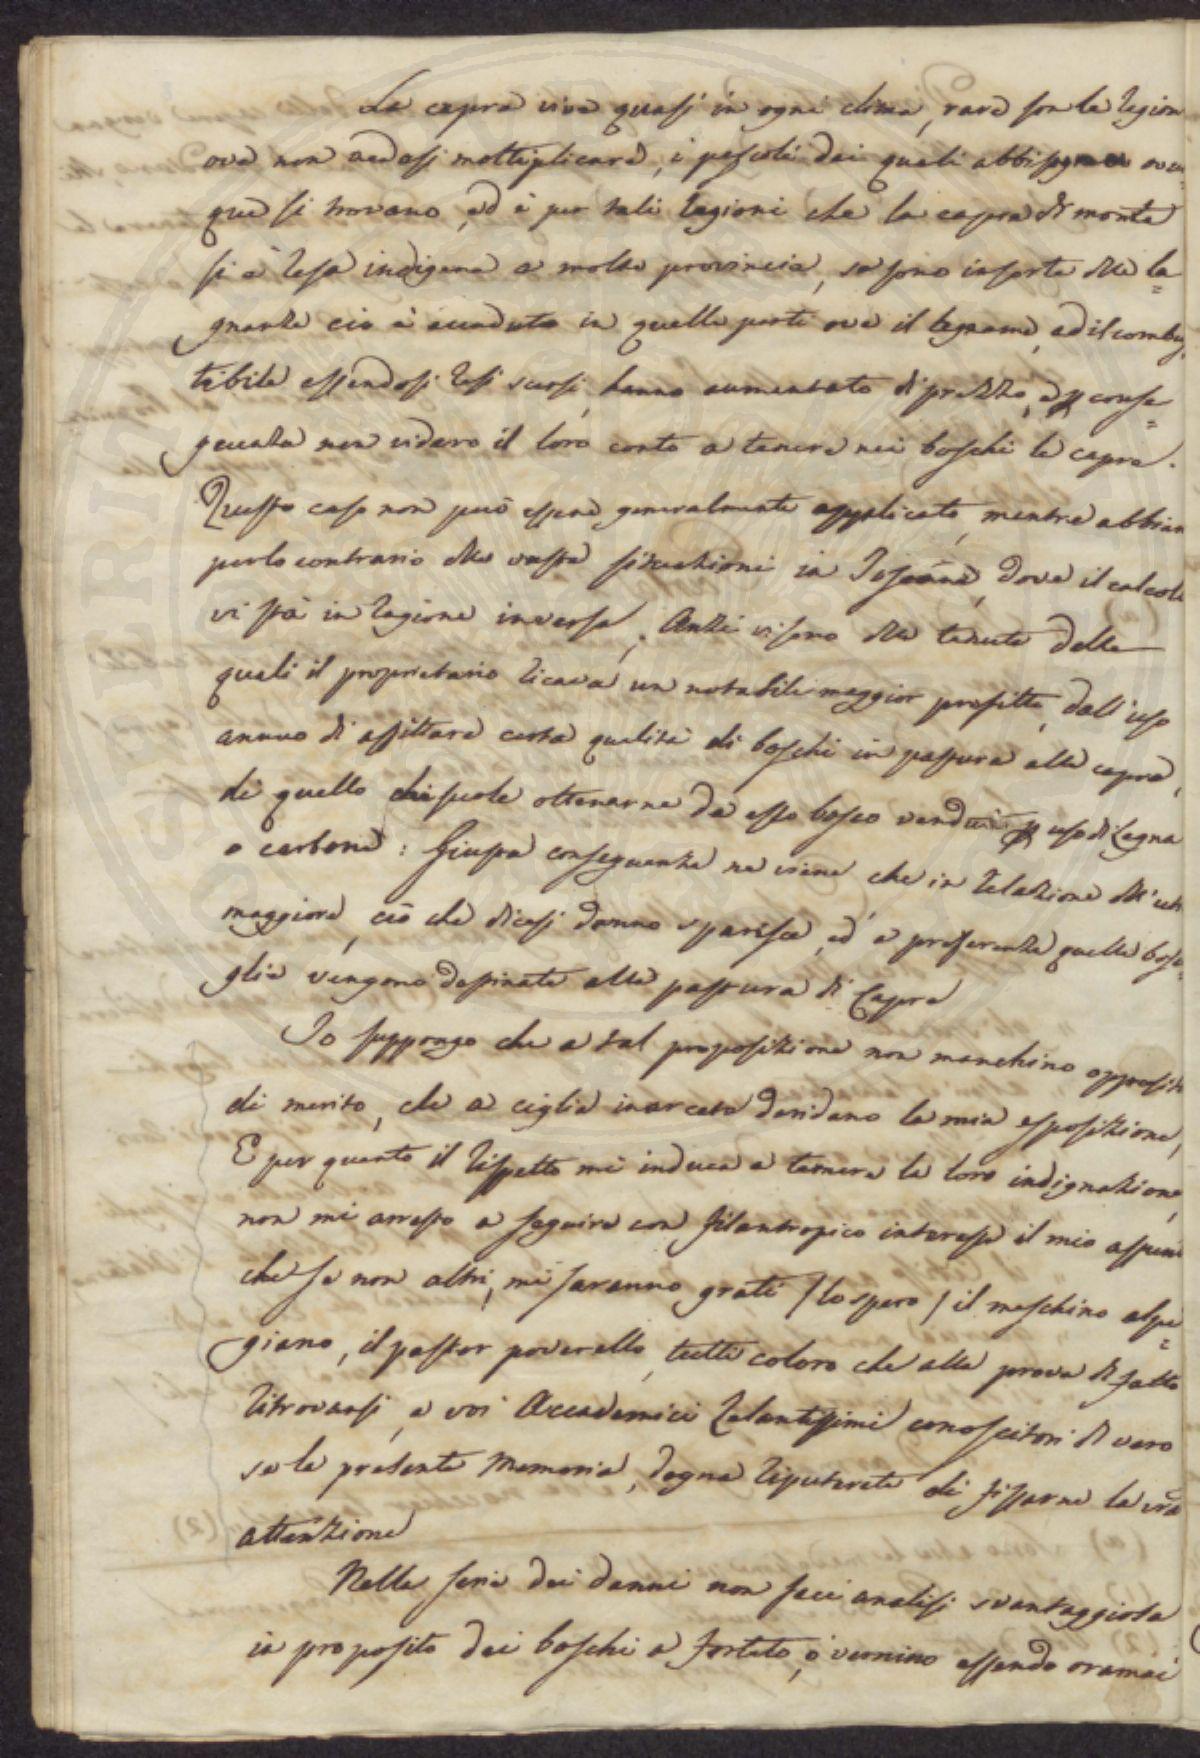 La capra vive quasi in ogni clima, rare son le region
ove non vedesi moltiplicare, i pascoli dei quali abbisogna ovun=
que si trovano, ed è per tali ragioni che la capra di monte
si è resa indigena a molte provincie, se sono insorte delle la=
gnanze ciò è accaduto in quelle parti ove il legname, ed il combus
tibile essendosi resi scarsi, hanno aumentato di prezzo, e p conse=
guenza non videro il loro conto a tenere nei boschi le capre.
Questo caso non può essere generalmente applicato, mentre abbiam
per lo contrario delle vaste situazioni in Toscana, dove il calcolo
vi stà in ragione inversa. Anzi vi sono delle tenute delle
quali il proprietario ricava un notabile maggior profitto, dall'uso
annuo di affittare certa qualità di boschi in pastura alle capre,
di quello che suole ottenerne da esso bosco vendu p uso di Legna
o carbone: Giusta conseguenza ne viene che in relazione dell'util
maggiore, ciò che dicesi danno sparisce, ed a preferenza quelle bosca=
glie vengono destinate alla pastura di Capre
Io suppongo che a tal proposizione non manchino oppositi
di merito, che a ciglia inarcate deridano la mia esposizione,
E per quanto il rispetto mi induca a temere la loro indignazione,
non mi arresto a seguire con filantropico interesse il mio assun
che se non altri, mi saranno grati / lo spero / il meschino alpi=
giano, il pastor poverello, tutti coloro che alla prova di fatto
ritrovansi, e voi Accademici Zelantissimi conoscitori di vero
se la presente Memoria, degna riputerete di fissarne la vra
attenzione
Nella serie dei danni non feci analisi svantaggiosa
in proposito dei boschi a forteto, o vernino essendo oramai